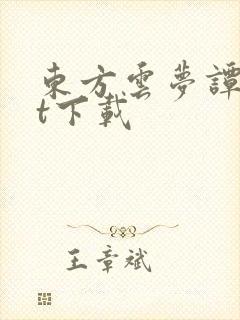 東方雲夢譚
t下載
王章斌